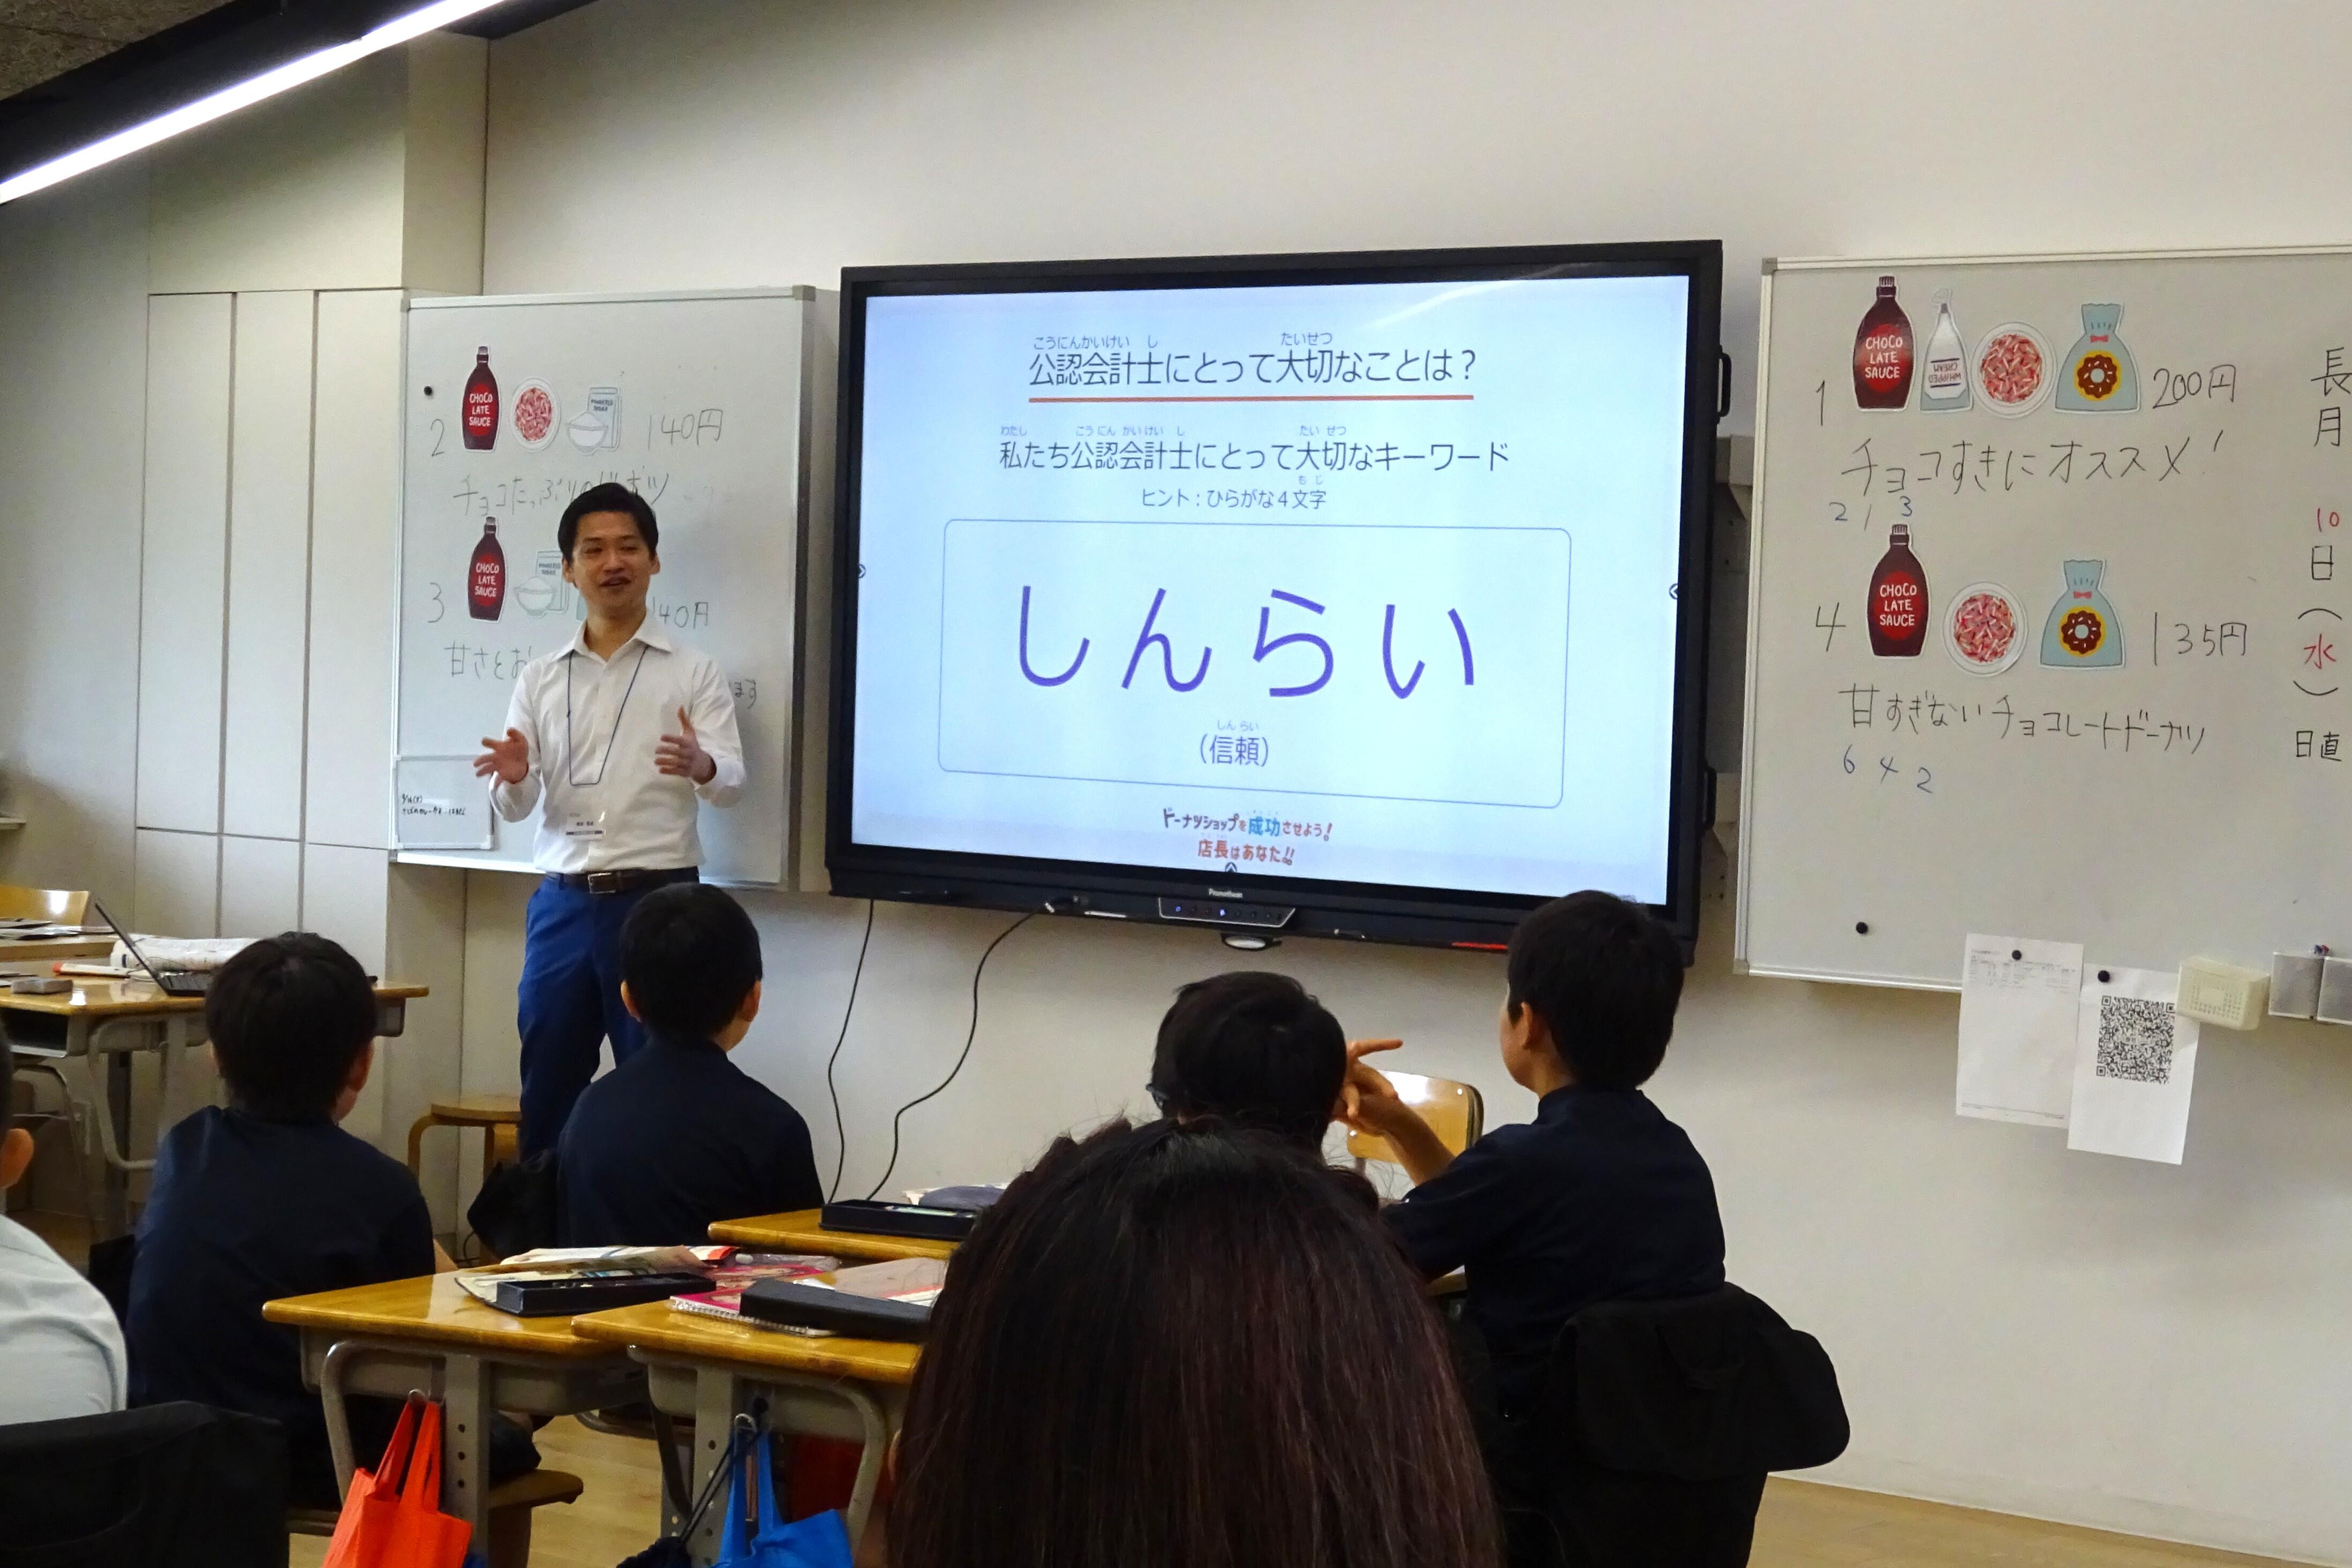 2
CHOCO
LATE
SAUCE
POWDERED
SUGAR
140円
3
CHOCO
LATE
SAUCE
40円
甘さとお
ます
こうにんかいけい し たいせつ
公認会計士にとって大切なことは？
わたし こうにん かいけい し たい せつ
私たち公認会計士にとって大切なキーワード
も じ
ヒント：ひらがな4文字
しんらい
しん らい
（信頼）
ドーナツショップを成功させよう！
店長はあなた!!
Promethean
1
CHOCO
LATE
SAUCE
WHIPPED
CREAM
200円
チョコすきにオススメ！
2 1 3
4
CHOCO
LATE
SAUCE
135円
甘すぎないチョコレートドーナツ
6 4 2
長
月
10
日
（
水
）
日直